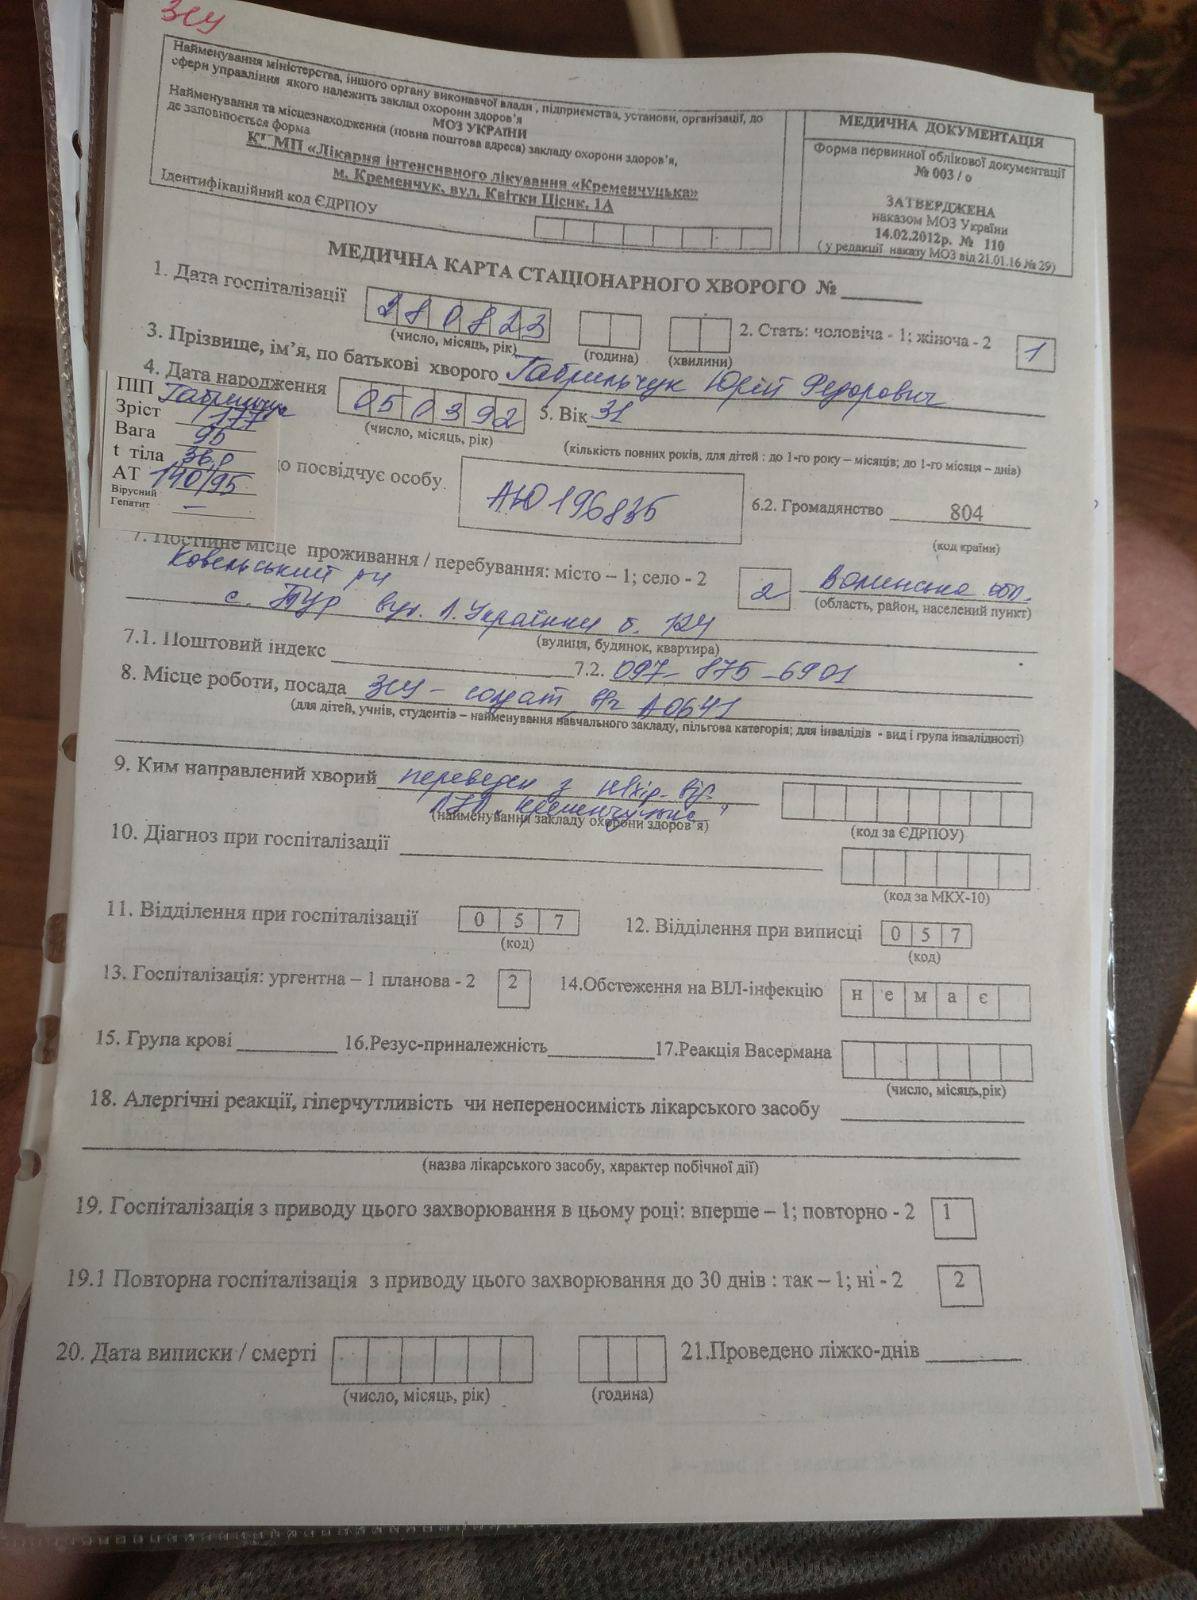 ЗСУ
Найменування міністерства, іншого органу виконавчої влади, підприємства, установи, організації, до
сфери управління якого належить заклад охорони здоров'я
МОЗ УКРАЇНИ
Найменування та місцезнаходження (повна поштова адреса) закладу охорони здоров'я,
де заповнюється форма
МП «Лікарня інтенсивного лікування «Кременчуцька»
м. Кременчук, вул. Квітки Цісик, 1А
Ідентифікаційний код ЄДРПОУ
МЕДИЧНА ДОКУМЕНТАЦІЯ
Форма первинної облікової документації
№ 003 / о
ЗАТВЕРДЖЕНА
наказом МОЗ України
14.02.2012р. № 110
( у редакції наказу МОЗ від 21.01.16 № 29)
МЕДИЧНА КАРТА СТАЦІОНАРНОГО ХВОРОГО №
1. Дата госпіталізації 280823
(число, місяць, рік) (година) (хвилини)
2. Стать: чоловіча - 1; жіноча - 2 1
3. Прізвище, ім'я, по батькові хворого Габрильчук Юрій Федорович
4. Дата народження 050392 5. Вік 31
(число, місяць, рік)
(кількість повних років, для дітей : до 1-го року – місяців; до 1-го місяця – днів)
ПІП Габрильчук
Зріст 177
Вага 95
t тіла 36,0
АТ 140/95
Вірусний
Гепатит –
що посвідчує особу АЮ196835 6.2. Громадянство 804
(код країни)
7. Постійне місце проживання / перебування: місто – 1; село - 2 2 Волинська обл.
(область, район, населений пункт)
Ковельський рн
с. Тур вул. Л. Українки б. 124
(вулиця, будинок, квартира)
7.1. Поштовий індекс 7.2. 097-875-6901
8. Місце роботи, посада ЗСУ – солдат в/ч А0641
(для дітей, учнів, студентів – найменування навчального закладу, пільгова категорія; для інвалідів - вид і група інвалідності)
9. Ким направлений хворий переведен з від.
ЛІЛ
(найменування закладу охорони здоров'я) (код за ЄДРПОУ)
10. Діагноз при госпіталізації
(код за МКХ-10)
11. Відділення при госпіталізації 0 5 7 12. Відділення при виписці 0 5 7
(код) (код)
13. Госпіталізація: ургентна – 1 планова - 2 2 14.Обстеження на ВІЛ-інфекцію н е м а є
15. Група крові 16.Резус-приналежність 17.Реакція Васермана
(число, місяць,рік)
18. Алергічні реакції, гіперчутливість чи непереносимість лікарського засобу
(назва лікарського засобу, характер побічної дії)
19. Госпіталізація з приводу цього захворювання в цьому році: вперше – 1; повторно - 2 1
19.1 Повторна госпіталізація з приводу цього захворювання до 30 днів : так – 1; ні - 2 2
20. Дата виписки / смерті 21.Проведено ліжко-днів
(число, місяць, рік) (година)